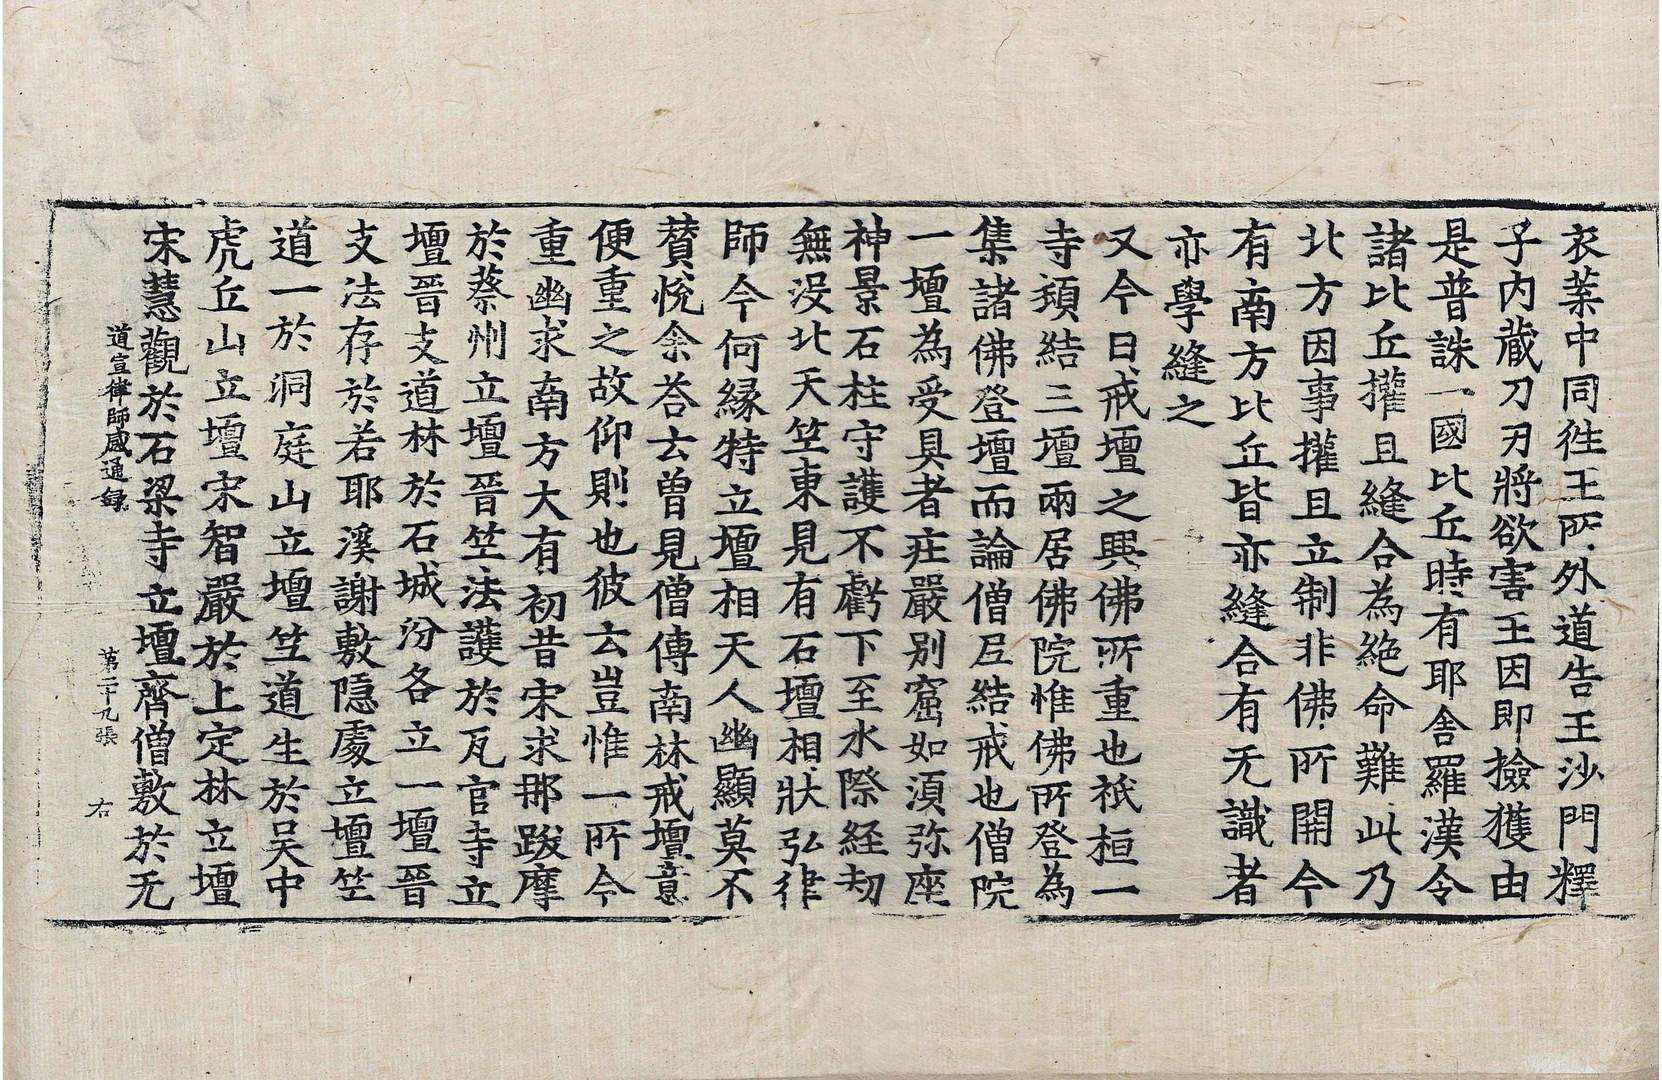 衣葉中同徃王所外道告王沙門釋
子内蔵刀刃將欲害王因即撿獲由
是普誅一國比丘時有耶舍羅漢令
諸比丘攉且縫合為絶命難此乃
北方因事攉且立制非佛所開今
有南方比丘皆亦縫合有无識者
亦學縫之
又今日戒壇之興佛所重也祇桓一
寺頍結三壇兩居佛院惟佛所登為
集諸佛登壇而論僧尼結戒也僧院
一壇為受具者疘嚴别窟如湏弥座
神景石柱守護不虧下至水際経劫
無没北天竺東見有石壇相狀弘律
師今何縁特立壇相天人幽顯莫不
賛悦余荅云曽見僧傳南林戒壇意
便重之故仰則也彼云豈惟一所今
重幽求南方大有初昔宋求那跋摩
於蔡州立壇晉竺法護於瓦官寺立
壇晉支道林於石城汾各立一壇晉
支法存於若耶溪謝敷隠處立壇竺
道一於洞庭山立壇竺道生於吴中
虎丘山立壇宋智嚴於上定林立壇
宋慧觀於石梁寺立壇齊僧敷於无
道宣律師感通録 第二十九張 右